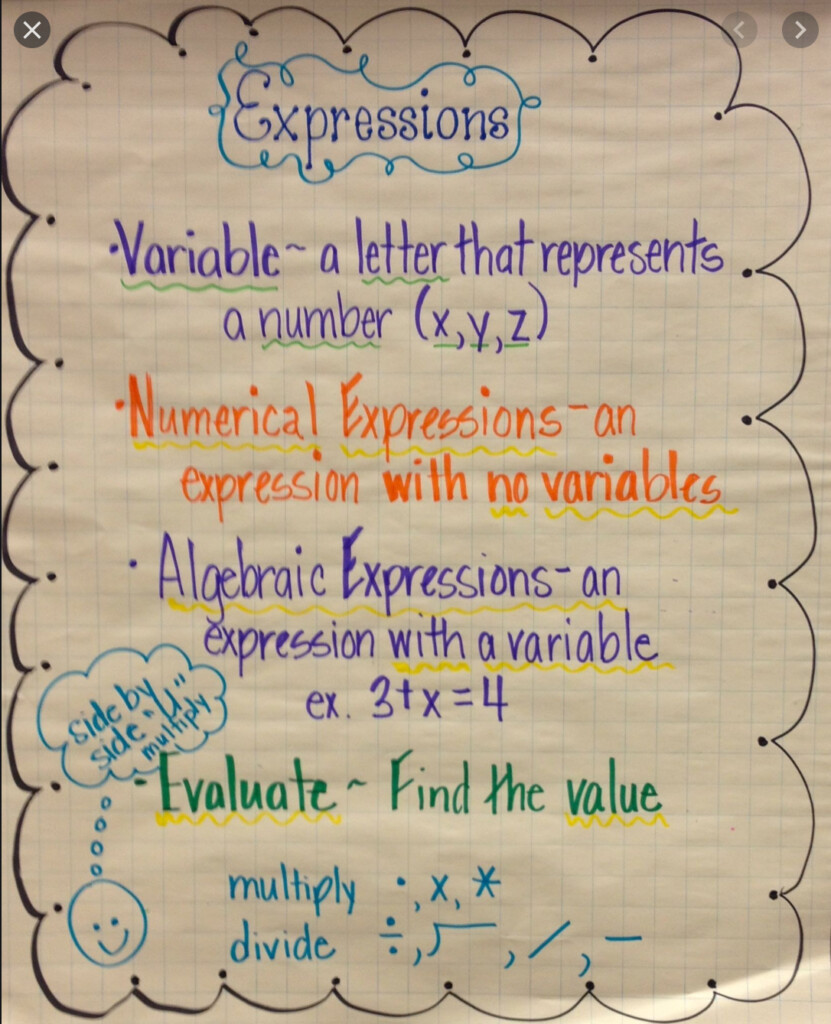 Expressions
·Variable~ a letter that represents
a number (x,y,z)
·Numerical Expressions-an
expression with no variables
· Algebraic Expressions-an
expression with a variable
ex. 3+x=4
side by
side "U"
multiply
·Evaluate~ Find the value
multiply ·, x, *
divide ÷, √‾, /, —